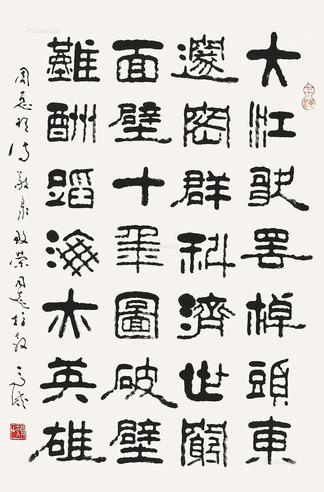 大江歌罢棹頭東
邃密群科濟世窮
面壁十年圖破壁
難酬蹈海亦英雄
周恩來詩